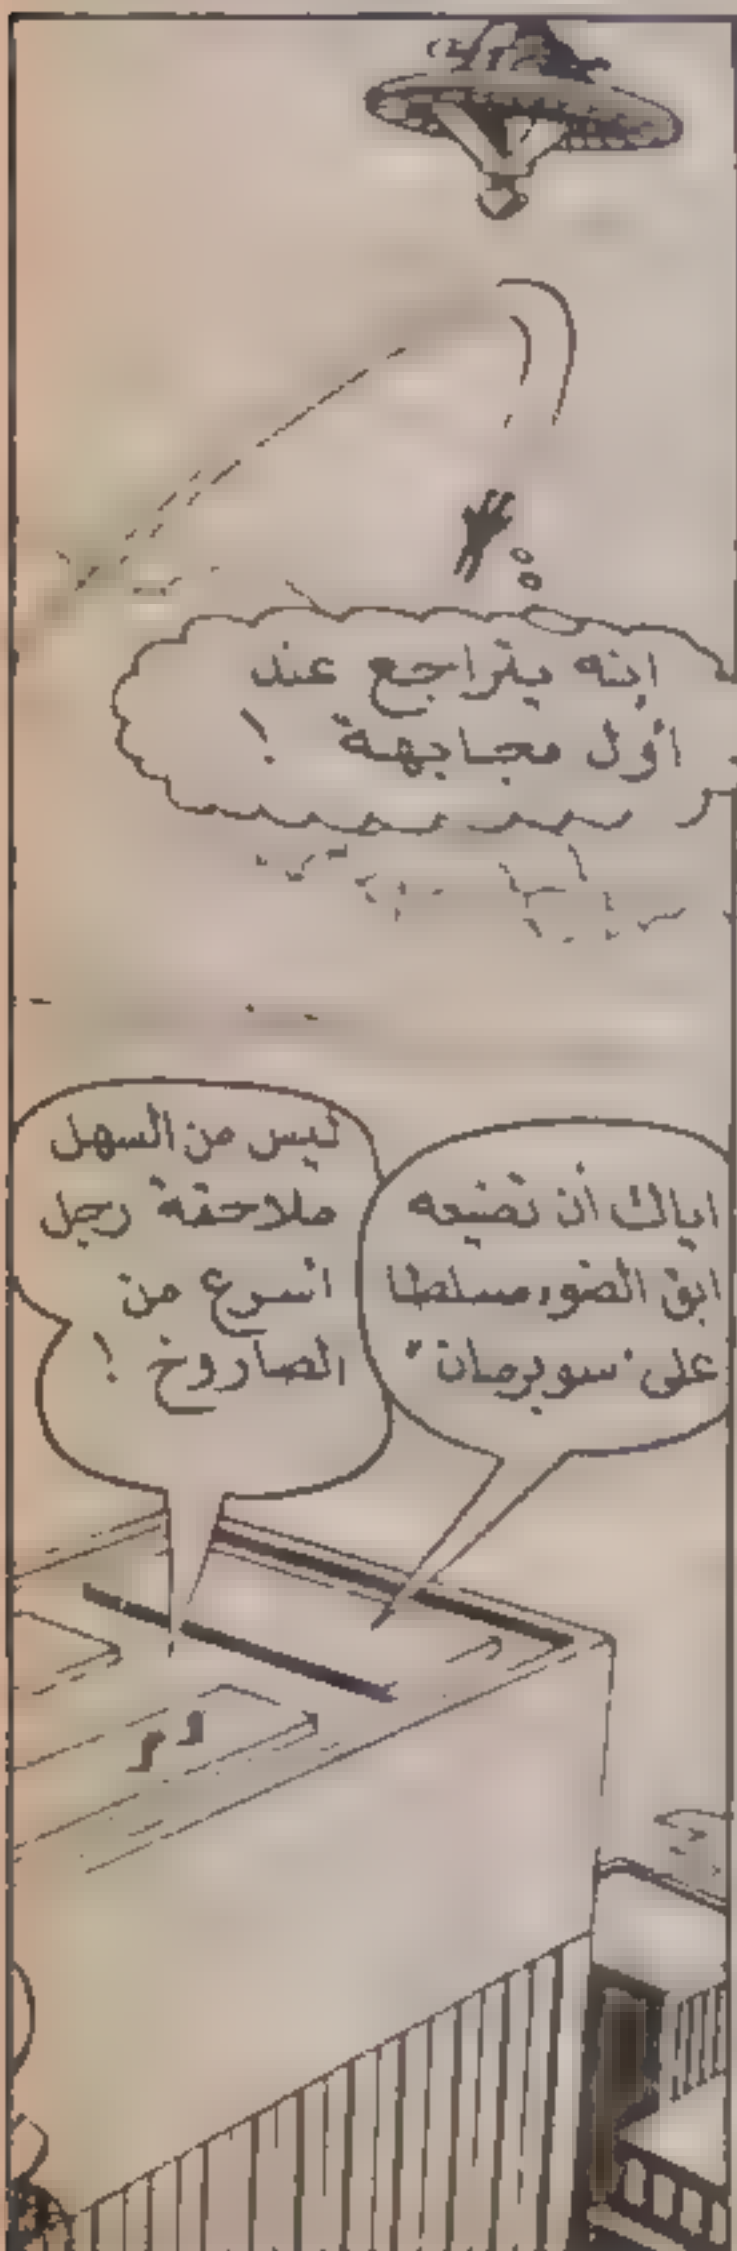 انه يتراجع عند
أول مجابهة !
اياك أن تضيعه
ابق الضوء مسلطا
على "سوبرمان"
ليس من السهل
ملاحقة رجل
اسرع من
الصاروخ !